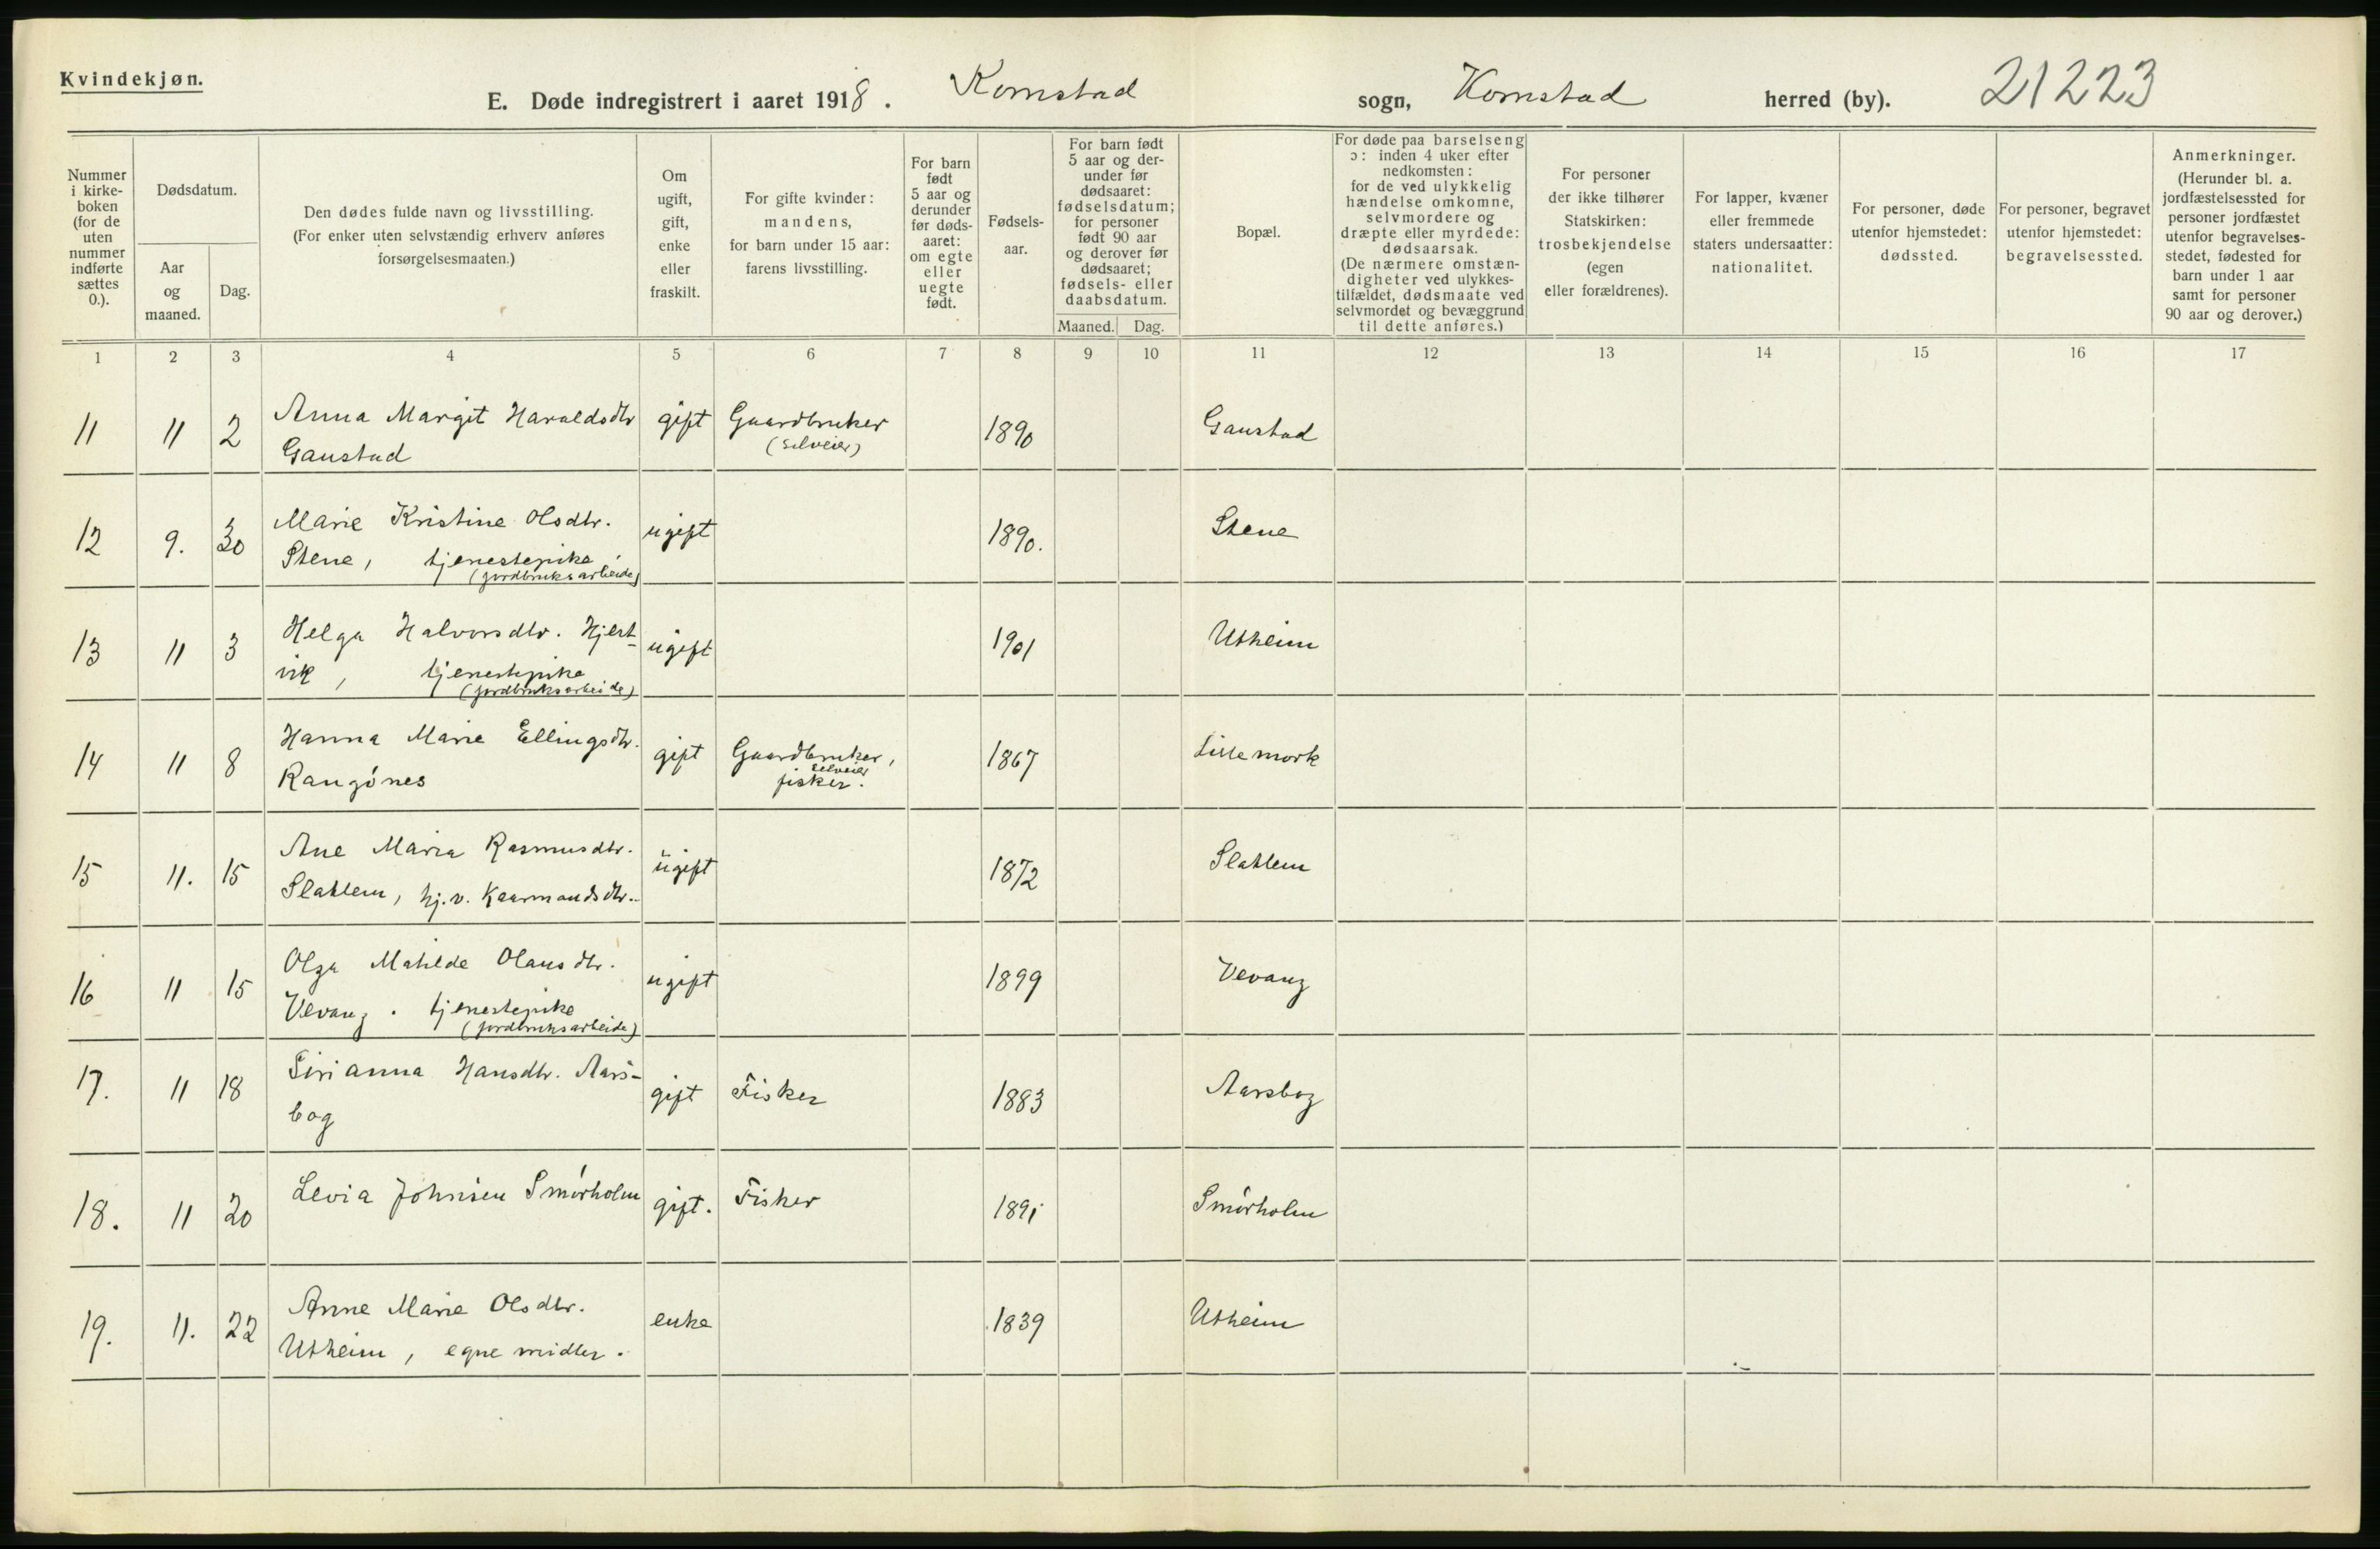 Kvindekjøn.
E. Døde indregistrert i aaret 1918. Kornstad sogn, Kornstad herred (by). 21223
Nummer i kirke- boken (for de uten nummer indførte sættes 0.).
Dødsdatum.
Aar og maaned.
Dag.
Den dødes fulde navn og livsstilling.
(For enker uten selvstændig erhverv anføres
forsørgelsesmaaten.)
Om ugift, gift, enke eller fraskilt.
For gifte kvinder:
mandens,
for barn under 15 aar:
farens livsstilling.
For barn født 5 aar og derunder før døds- aaret: om egte eller uegte født.
Fødsels- aar.
For barn født 5 aar og der- under før dødsaaret: fødselsdatum; for personer født 90 aar og derover før dødsaaret; fødsels- eller daabsdatum.
Maaned. Dag.
Bopæl.
For døde paa barselseng
ɔ: inden 4 uker efter
nedkomsten:
for de ved ulykkelig
hændelse omkomne,
selvmordere og
dræpte eller myrdede:
dødsaarsak.
(De nærmere omstæn-
digheter ved ulykkes-
tilfældet, dødsmaate ved
selvmordet og bevæggrund
til dette anføres.)
For personer
der ikke tilhører
Statskirken:
trosbekjendelse
(egen
eller forældrenes).
For lapper, kvæner
eller fremmede
staters undersaatter:
nationalitet.
For personer, døde
utenfor hjemstedet:
dødssted.
For personer, begravet
utenfor hjemstedet:
begravelsessted.
Anmerkninger.
(Herunder bl. a.
jordfæstelsessted for
personer jordfæstet
utenfor begravelses-
stedet, fødested for
barn under 1 aar
samt for personer
90 aar og derover.)
1 2 3 4 5 6 7 8 9 10 11 12 13 14 15 16 17
11 11 2 Anna Margit Haraldsdtr gift Gaardbruker 1890 Gaustad
Gaustad (selveier)
12 9. 30 Marie Kristine Olsdtr. ugift 1890. Stene
Stene, tjenestepike
(jordbruksarbeide)
13 11 3 Helga Halvorsdtr. Hjert- ugift 1901 Utheim
vik, tjenestepike
(jordbruksarbeide)
14 11 8 Hanna Marie Ellingsdtr. gift Gaardbruker, 1867 Lillemork
Rangönes selveier
fisker.
15 11. 15 Ane Maria Rasmusdtr. ugift 1872 Slatlem
Slatlem, hj.v. Kaarmandsdtr.
16 11 15 Olga Matilde Olausdtr. ugift 1899 Vevang
Vevang. tjenestepike
(jordbruksarbeide)
17. 11 18 Sirianna Hansdtr. Aars- gift Fisker 1883 Aarsbog
bog
18. 11 20 Levia Johnsen Smörholm gift. Fisker 1891 Smörholm
19. 11. 22 Anne Marie Olsdtr. enke 1839 Utheim
Utheim, egne midler.